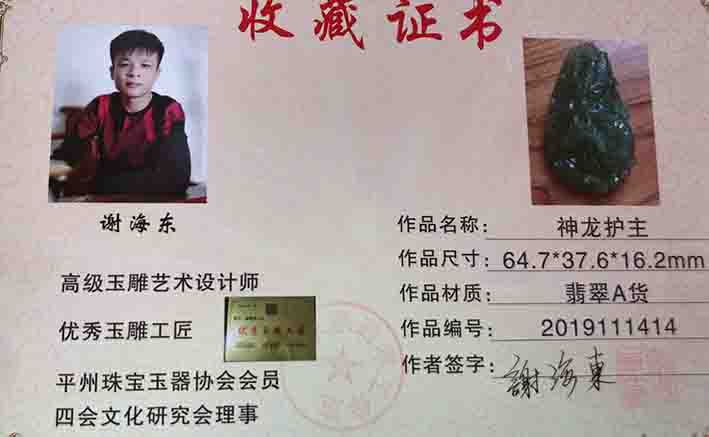 收藏证书
谢海东
高级玉雕艺术设计师
优秀玉雕工匠
平州珠宝玉器协会会员
四会文化研究会理事
作品名称: 神龙护主
作品尺寸: 64.7*37.6*16.2mm
作品材质: 翡翠A货
作品编号: 2019111414
作者签字: 謝海東